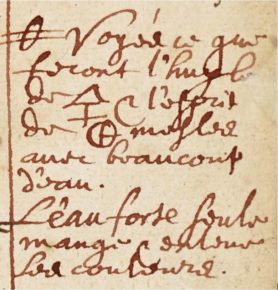 Voyés ce que
feront l'huyle
de 🜍 & l'esprit
de mesles
avec beaucoup
d'eau.
L'eau forte seule
mange & enleve
les couleurs.